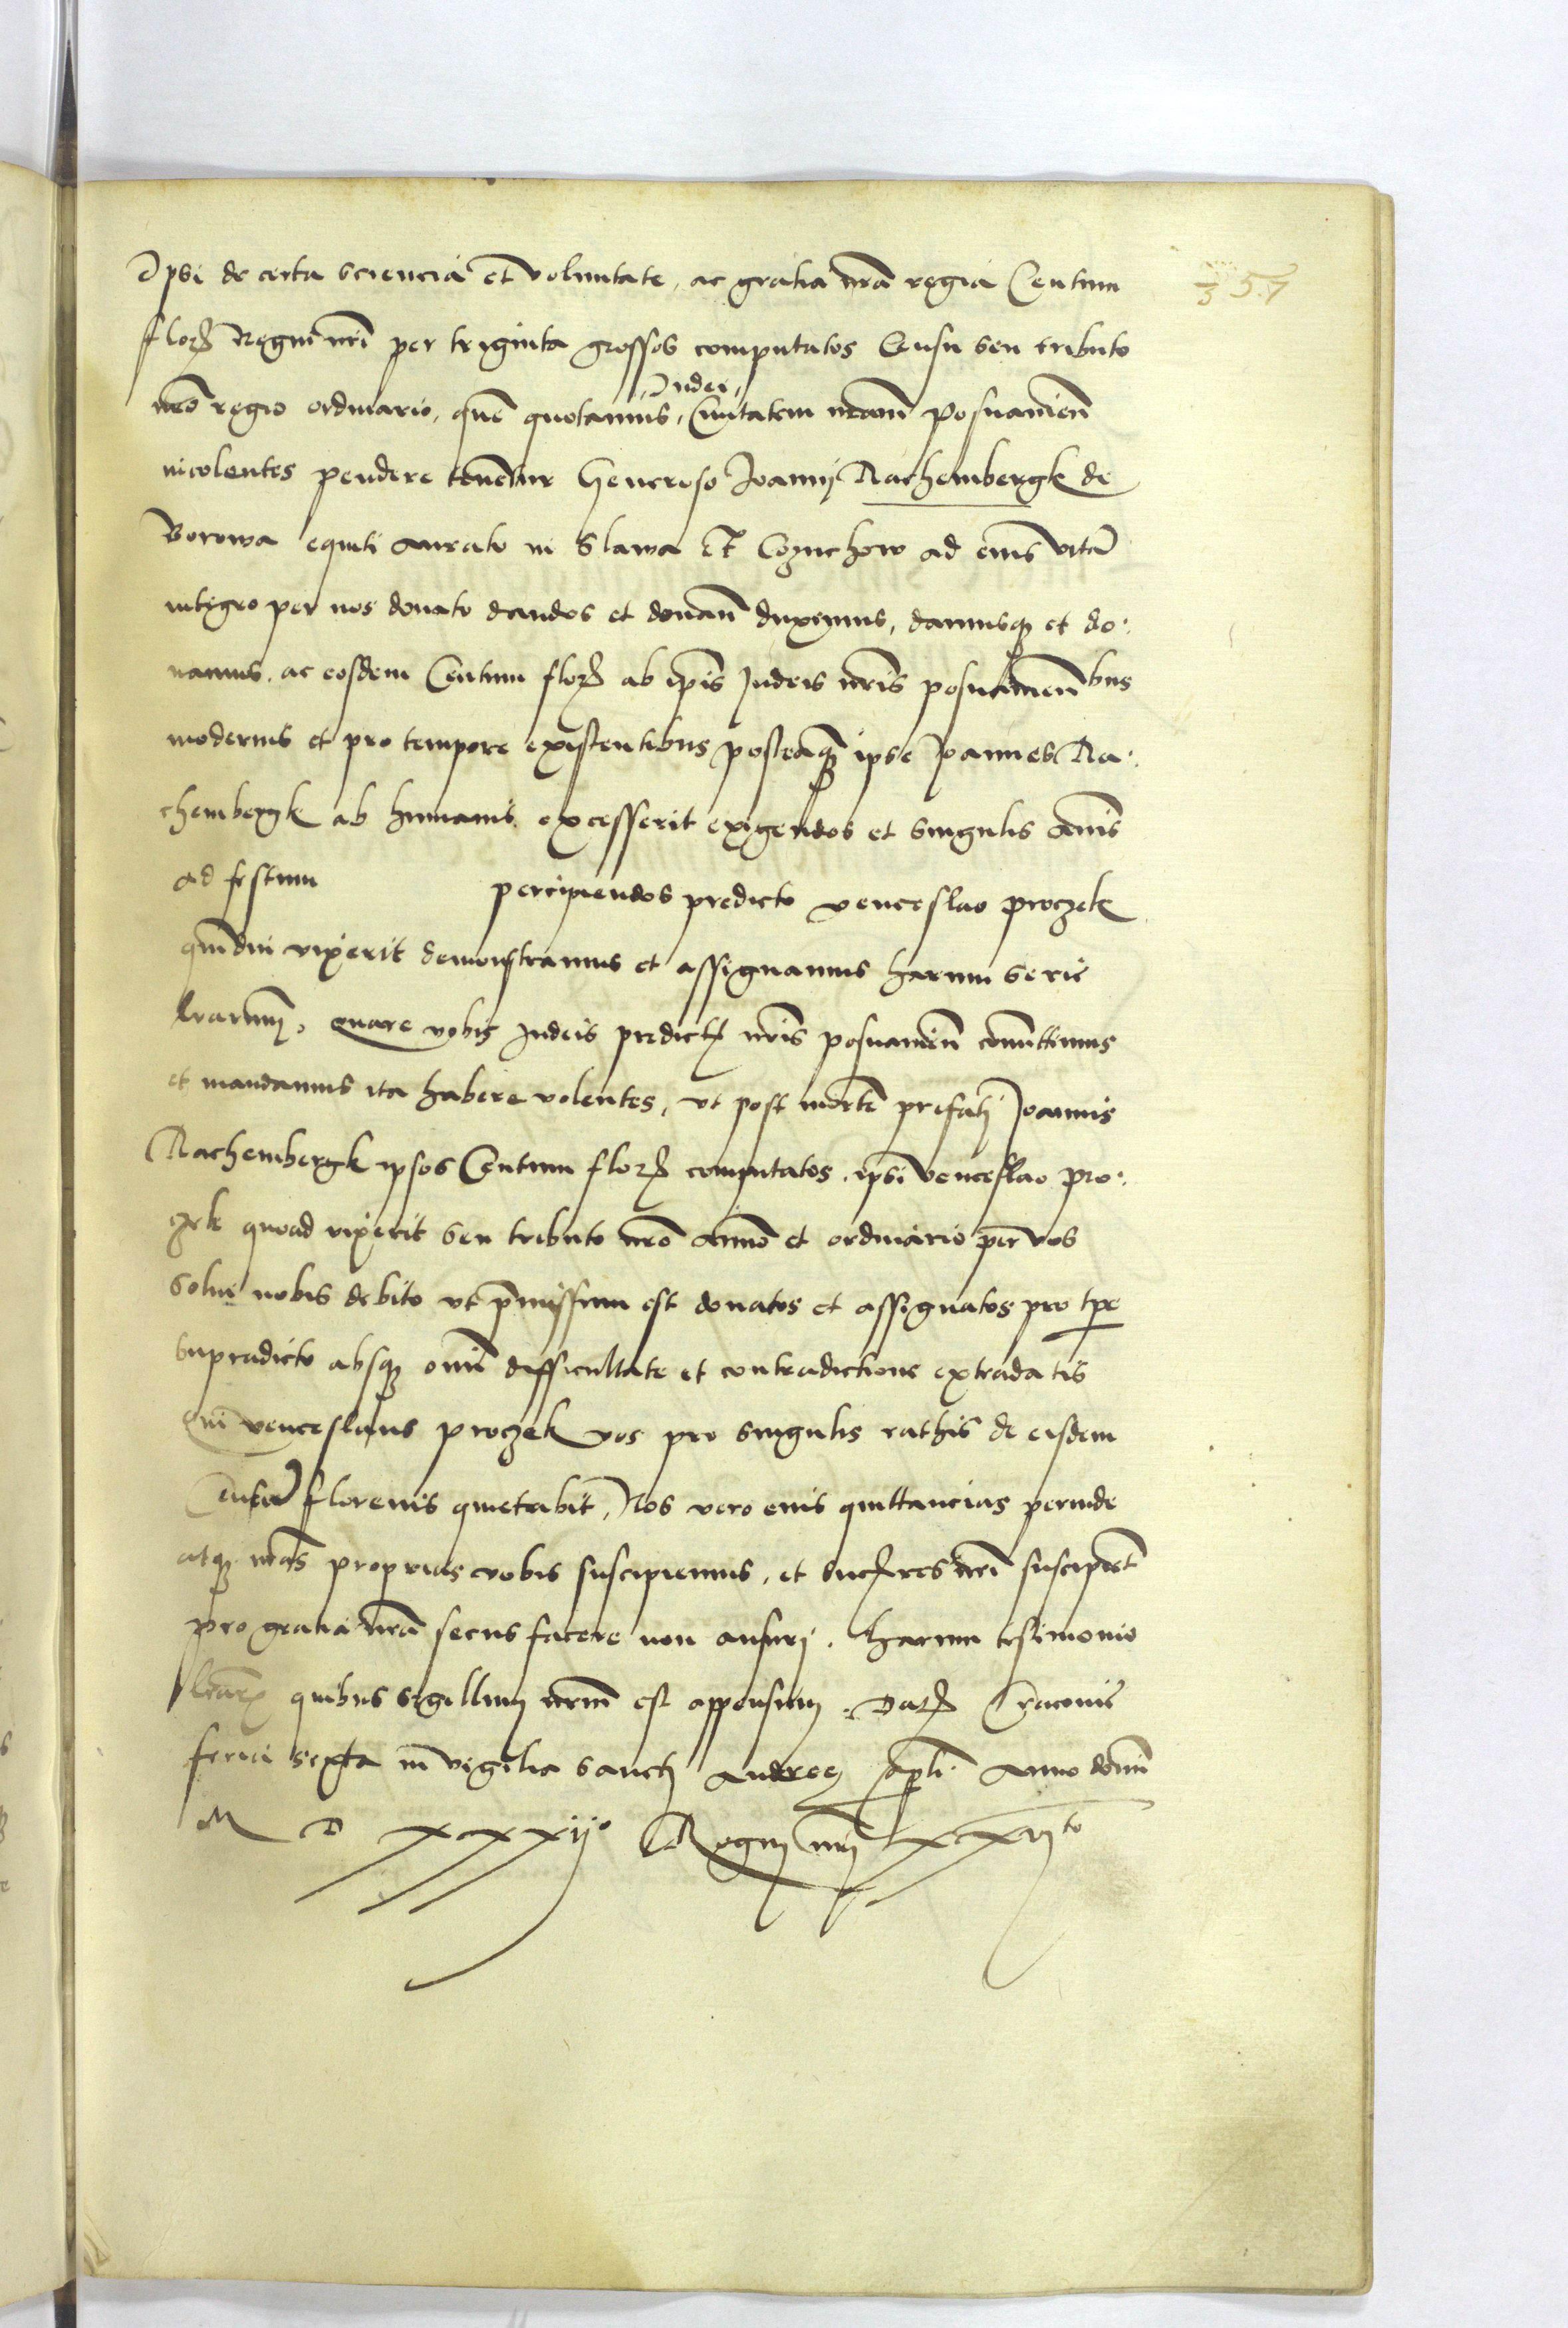 357
Ipsi de certa sciencia et voluntate, ac gratia nrā regia Centum
floꝝ Regni nrī per triginta grossos computatos Censu seu tributo
nrō regio ordinario, quē quotannis, Iudei, Civitatem nrām Posnanieñ
incolentes pendere tenētur Generoso Joanni Rachembergk de
Borowa equiti aurato in Slawa et Coznchow ad eius vitā
integro per nos donato dandos et donañ duximus, damusqꝫ et do:
namus. ac eosdem Centum floꝝ ab ipīs Judeis nrīs posnanieñbus
modernis et pro tempore existentibus posteaqꝫ ipse Joannes Ra:
chembergk ab humanis excesserit exigendos et singulis annis
ad festum percipiendos predicto venceslao proczek
quādiu vixerit demonstramus et assignamus harum serie
lrarum. Quare vobis Judeis predictꝭ nrīs posnanieñ comittimus
et mandamus ita habere volentes, vt post mortē prefati Joannis
Rachembergk ipsos Centum floꝝ computatos. ipsi venceslao pro:
czek quoad vixerit seu tributo nrō annuo et ordinario per vos
solui nobis debito vt premissum est donatos et assignatos pro tpe
supradicto absqꝫ omni difficultate et contradictione extradatis
Qui venceslaus proczek vos pro singulis rathis de eisdem
Centum florenis quietabit, Nos vero eius quittancias perinde
atqꝫ nrās proprias vobis suscipiemus. et succꝭres nrī suscipient
pro gratia nrā secus facere non ausuri. harum testimonio
lrarꝝ quibus sigillum nrum est appensum. Datꝝ Cracovie
feria sexta in vigilia sancti Andree apli. Anno domī
M D xxxij° Regni nri xxvjto